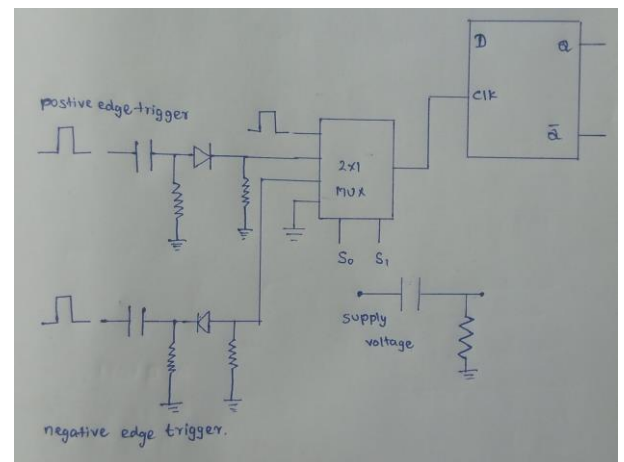 D Q
postive edge-trigger
Clk
Q̅
2x1
MUX
S0 S1
supply
voltage
negative edge trigger.